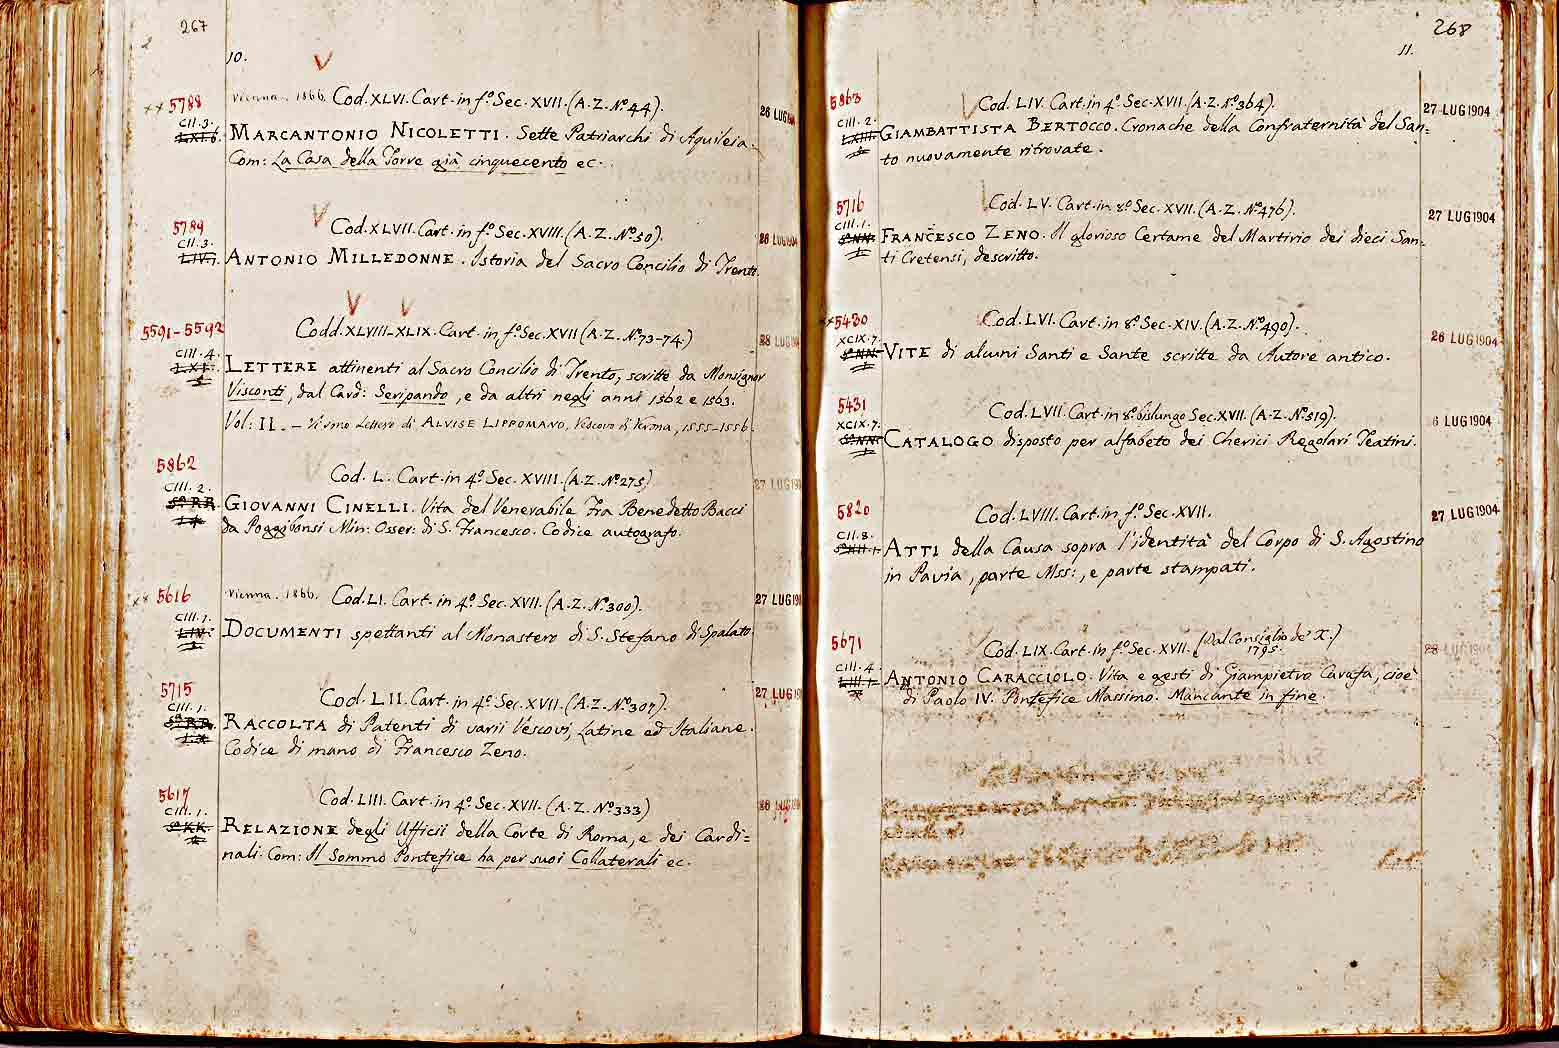 267
10.
Vienna. 1866. Cod. XLVI. Cart. in f.º Sec. XVII. (A. Z. Nº 44).
5788
CII. 3.
26 LUG
MARCANTONIO NICOLETTI. Sette Patriarchi di Aquileia.
Com: La Casa della Torre già cinquecento ec.
5789
CII. 3.
Cod. XLVII. Cart. in f.º Sec. XVIII. (A. Z. Nº 50).
26 LUG 1904
LIV.
ANTONIO MILLEDONNE. Istoria del Sacro Concilio di Trento.
5591-5592
CIII. 4.
Codd. XLVIII-XLIX. Cart. in f.º Sec. XVII (A. Z. Nº 73-74.)
28 LUG
LETTERE attinenti al Sacro Concilio di Trento, scritte da Monsignor
Visconti, dal Card: Seripando, e da altri negli anni 1562 e 1563.
Vol: II. - Vi sono Lettere di ALVISE LIPPOMANO, Vescovo di Verona, 1555-1556.
5862
CIII. 2.
Sº RR
Cod. L. Cart. in 4º. Sec. XVIII. (A. Z. Nº 275)
27 LUG 190
GIOVANNI CINELLI. Vita del Venerabile Fra Benedetto Bacci
da Poggibonsi Min: Osser: di S. Francesco. Codice autografo.
5616
CIII. 1.
LIV.
Vienna. 1866. Cod. LI. Cart. in 4º. Sec. XVII. (A. Z. Nº 300).
27 LUG 190
DOCUMENTI spettanti al Monastero di S. Stefano di Spalato.
5715
CIII. 1.
Sº RR
Cod. LII. Cart. in 4º. Sec. XVII. (A. Z. Nº 307).
27 LUG 19
RACCOLTA di Patenti di varii Vescovi, Latine ed Italiane.
Codice di mano di Francesco Zeno.
5617
CIII. 1.
Sº KK.
Cod. LIII. Cart. in 4º. Sec. XVII. (A. Z. Nº 333)
28 LUG
RELAZIONE degli Ufficii della Corte di Roma, e dei Cardi=
nali. Com: Il Sommo Pontefice ha per suoi Collaterali ec.
268
11.
5863
CIII. 2.
LXIII.
Cod. LIV. Cart. in 4º. Sec. XVII. (A. Z. Nº 364).
27 LUG 1904
GIAMBATTISTA BERTOCCO. Cronache della Confraternità del San=
to nuovamente ritrovate.
5716
CIII. 1.
Sº NN.
Cod. LV. Cart. in 8º. Sec. XVII. (A. Z. Nº 476).
27 LUG 1904
FRANCESCO ZENO. Il glorioso Certame del Martirio dei dieci San=
ti Cretensi, descritto.
5430
XCIX. 7.
Sº NN.
Cod. LVI. Cart. in 8º. Sec. XIV. (A. Z. Nº 490).
26 LUG 1904
VITE di alcuni Santi e Sante scritte da Autore antico.
5431
XCIX. 7.
Sº NN.
Cod. LVII. Cart. in 8º. bislungo Sec. XVII. (A. Z. Nº 519).
6 LUG 1904
CATALOGO disposto per alfabeto dei Cherici Regolari Teatini.
5820
CII. 8.
Cod. LVIII. Cart. in f.º Sec. XVII.
27 LUG 1904
ATTI della Causa sopra l'identità del Corpo di S. Agostino
in Pavia, parte Mss:, e parte stampati.
5671
CIII. 4.
LIII.
Cod. LIX. Cart. in f.º Sec. XVII. (Dal Consiglio de' X.)
1795.
28 LUG 1904
ANTONIO CARACCIOLO. Vita e gesti di Giampietro Carafa, cioè
di Paolo IV. Pontefice Massimo. Mancante in fine.